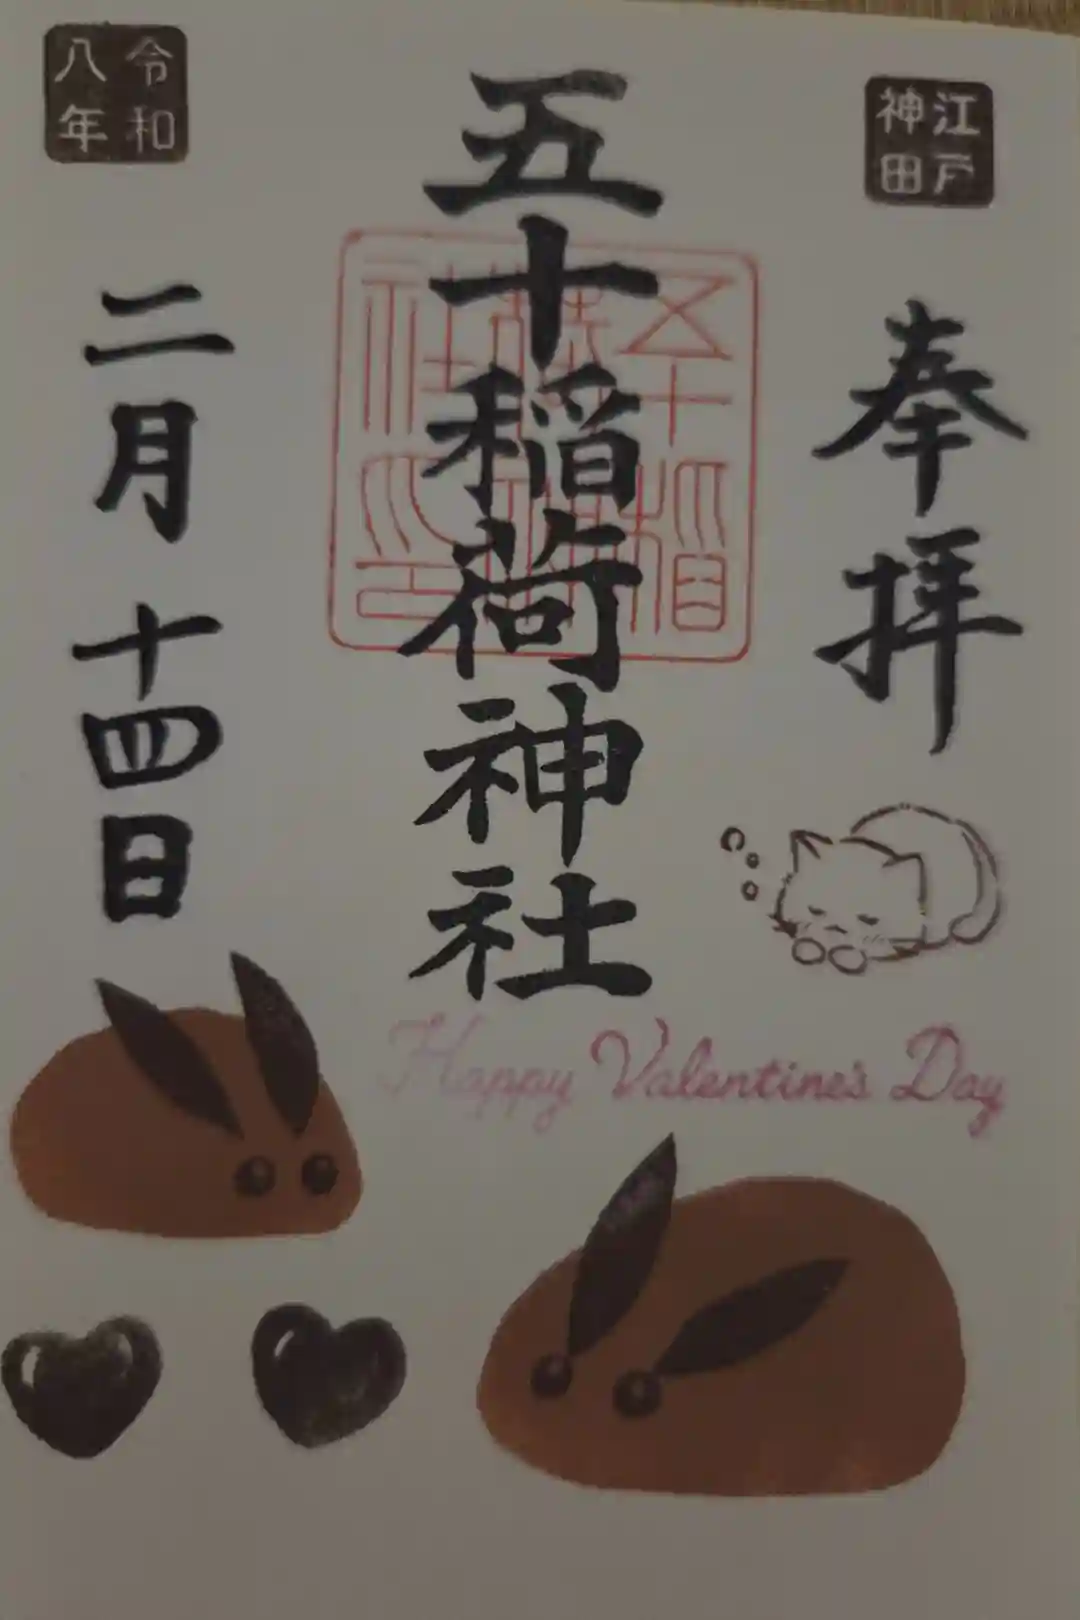 江戸
神田
奉拝
五十稲荷神社
五十稲
荷神社
令和
八年
二月十四日
Happy Valentine's Day